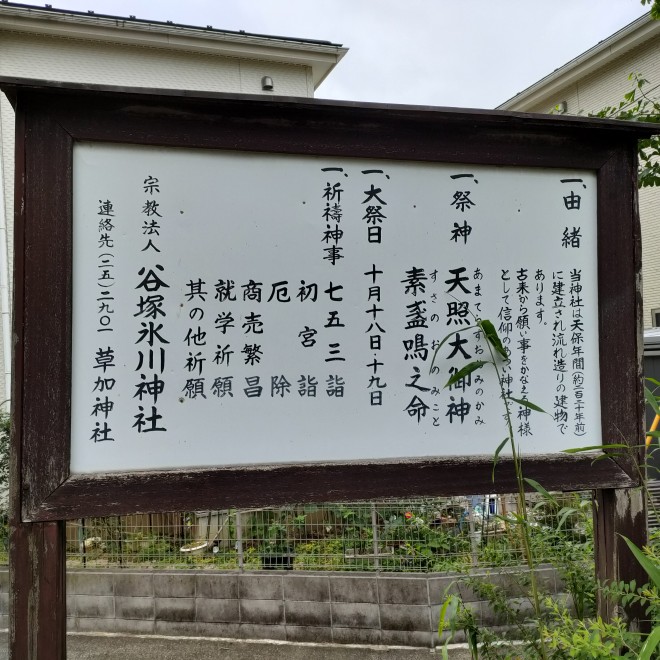 一、由緒
当神社は天保年間(約一百二十年前)
に建立され流れ造りの建物で
あります。
古来から願い事をかなえる神様
として信仰の
神社
一、祭神
天照大御神
素盞鳴之命
すさのおのみこと
一、大祭日 十月十八日・十九日
一、祈祷神事 七五三詣
初宮詣
厄除
商売繁昌
就学祈願
其の他祈願
宗教法人 谷塚氷川神社
連絡先(二五)二九〇一 草加神社